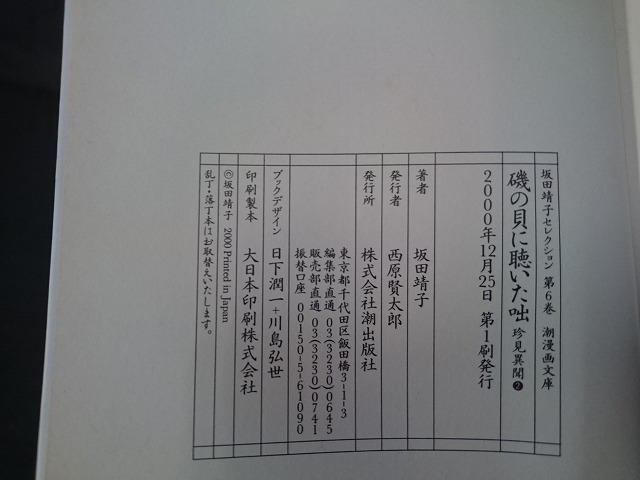 坂田靖子セレクション 第6巻 潮漫画文庫
磯の貝に聴いた咄 珍見異聞❷
2000年12月25日 第1刷発行
著者 坂田靖子
発行者 西原賢太郎
発行所 株式会社潮出版社
東京都千代田区飯田橋3-1-3
編集部直通 03(3230)0645
販売部直通 03(3230)0741
振替口座 00150-5-61090
ブックデザイン 日下潤一+川島弘世
印刷製本 大日本印刷株式会社
©坂田靖子 2000 Printed in Japan
乱丁・落丁本はお取替えいたします。